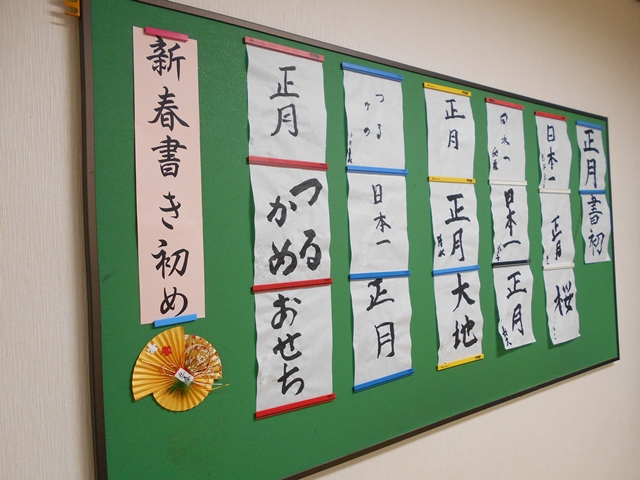 新春書き初め
正月
つる
かめ
おせち
つる
かめ
日本一
正月
正月
正月
大地
日本一
日本一
正月
日本一
正月
桜
正月
書初